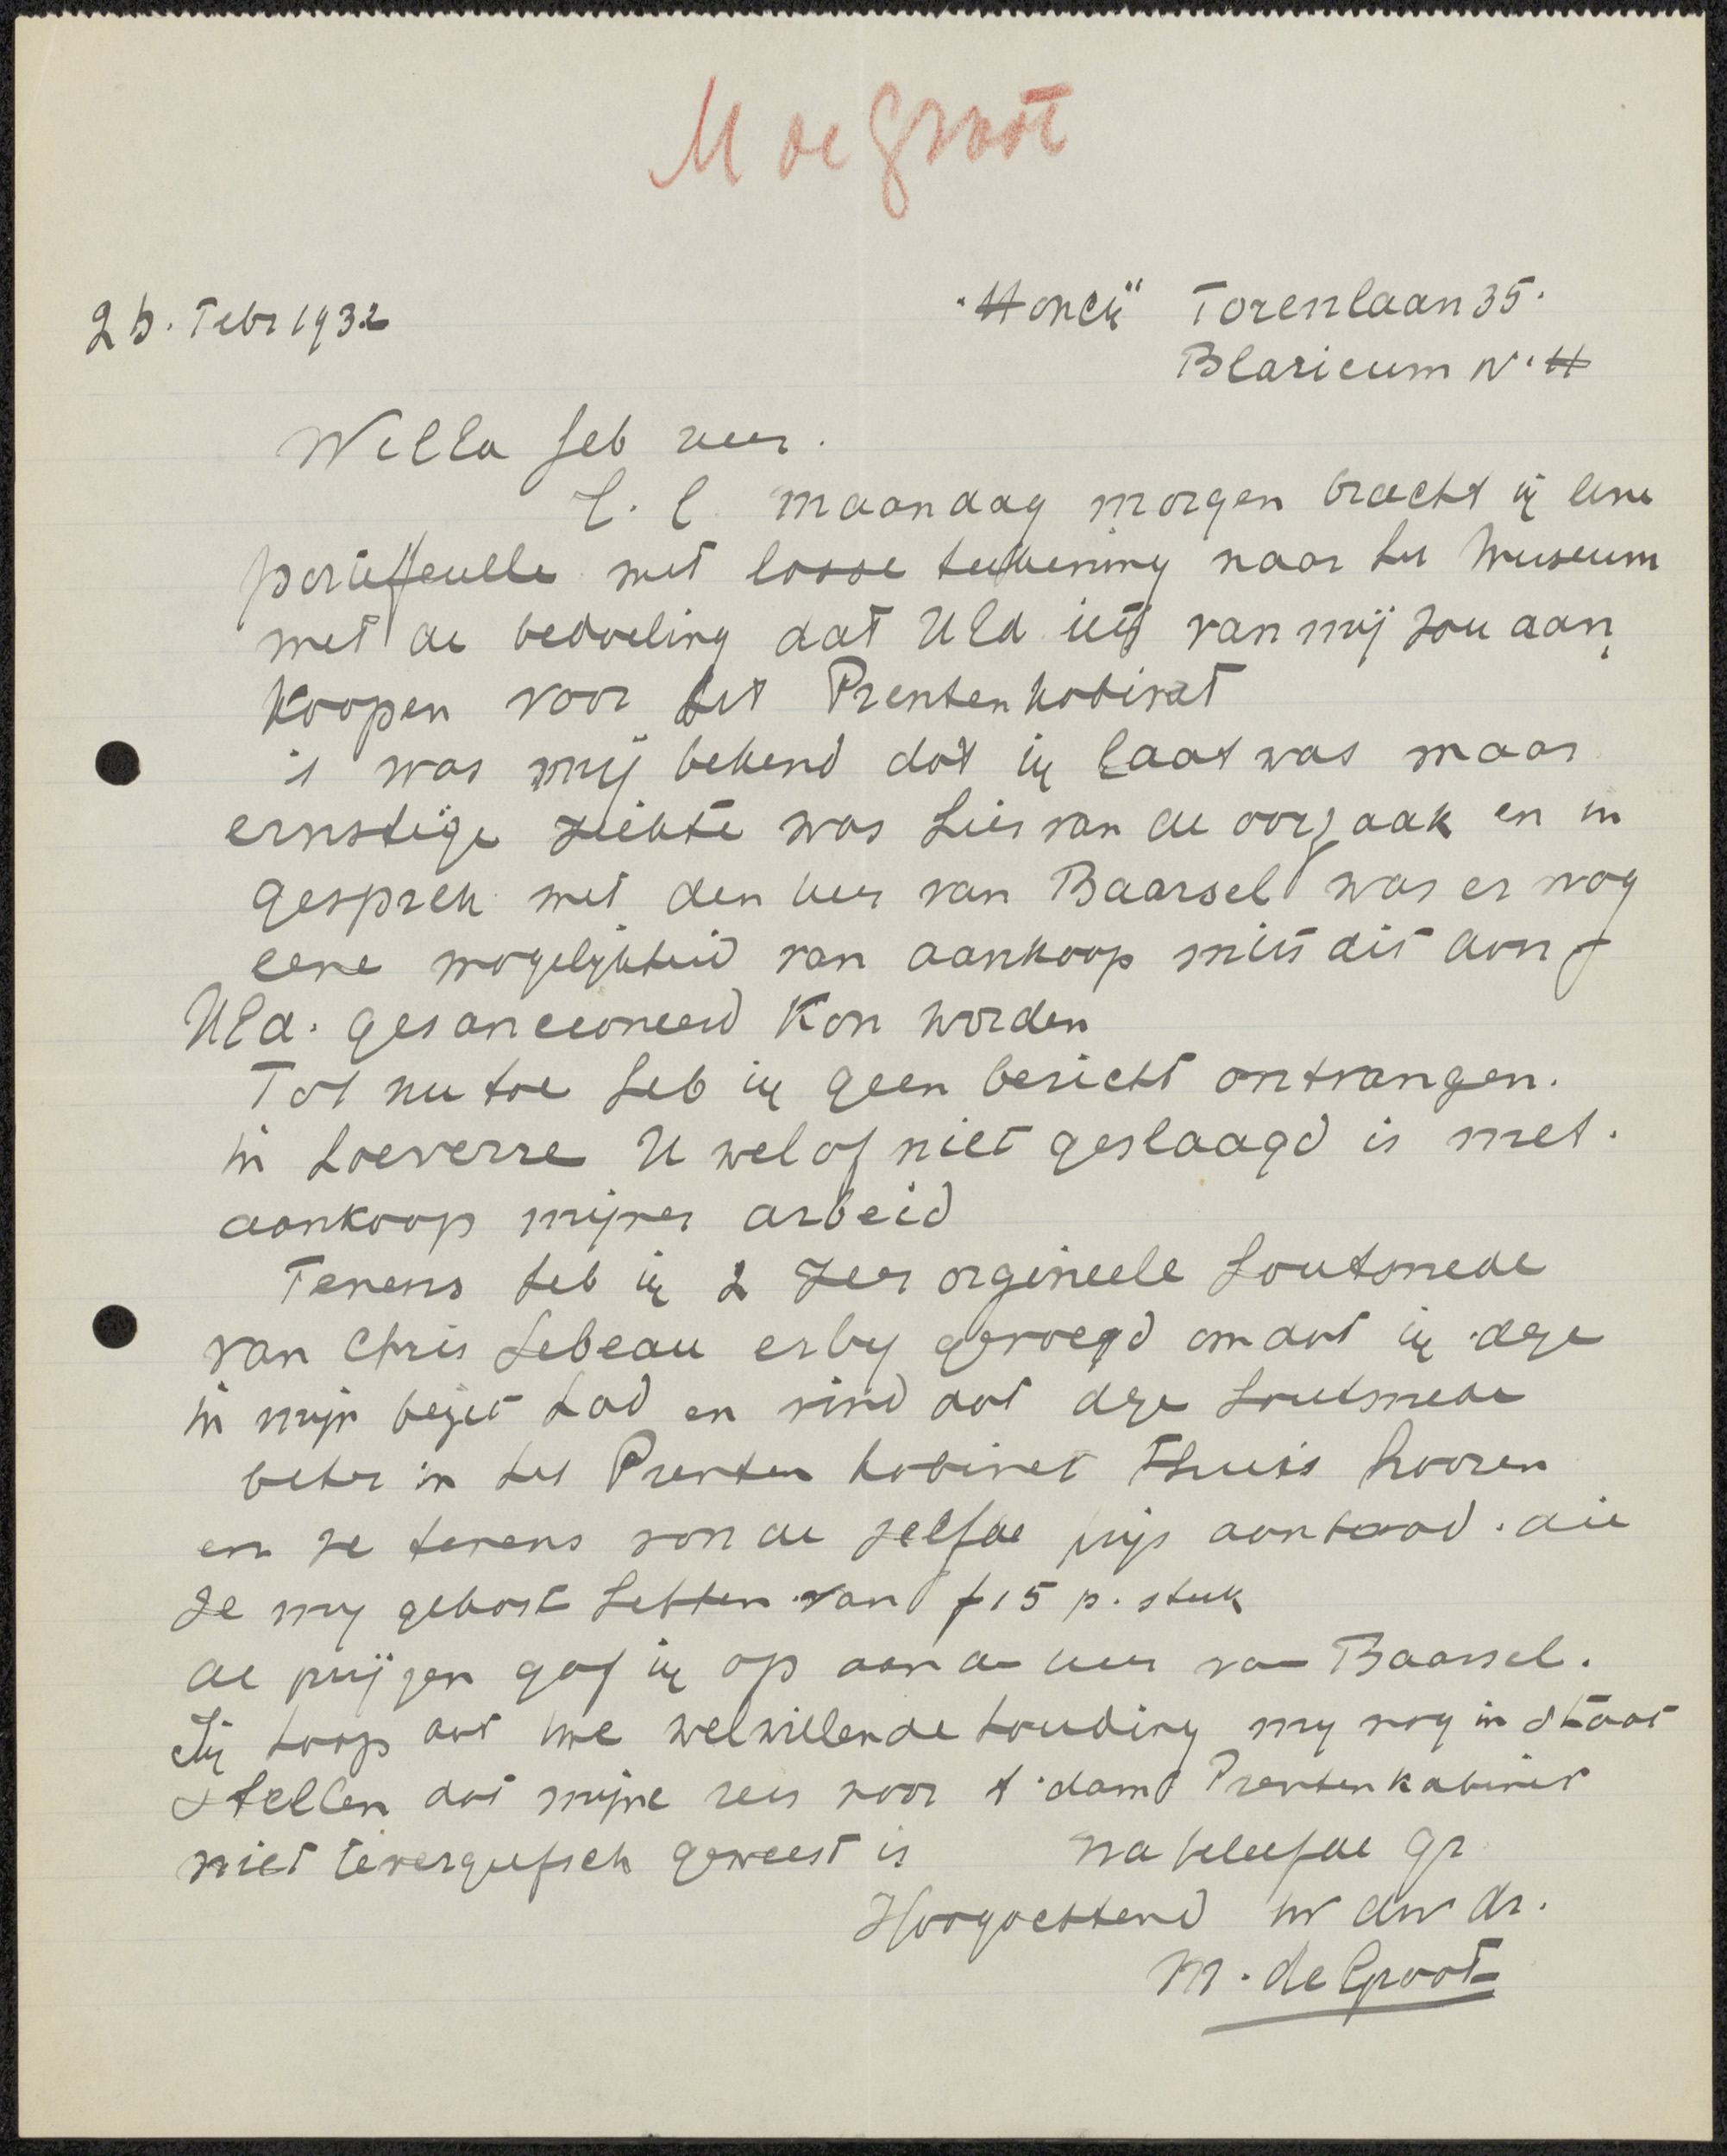 M de Groot
25. Febr 1932
"Honck" Torenlaan 35.
Blaricum N.H
WelEd Geb heer.
L.l. maandag morgen bracht ik eene
portefeulle met losse teekening naar het Museum
met de bedoeling dat UEd iets van mij zou aan
koopen voor het Prentenkabinet
is was mij bekend dat ik laat was maar
ernstige ziekte was hier van de oorzaak en in
gesprek met den heer van Baarsel was er nog
eene mogelijkheid van aankoop mits dit aon
UEd. gesancioneerd kon worden
Tot nu toe heb ik geen bericht ontvangen.
in hoeverre U wel of niet geslaagd is met.
aankoop mijner arbeid
Tevens heb ik 2 zeer orgineele houtsnede
van Chris Lebeau erby gevoegd omdat ik deze
in mijn bezit had en vind dat deze houtsnede
beter in het Prenten kabinet thuis hooren
en ze tevens von de zelfde prijs aanbood. die
ze my gekost hebben van f 15 p. stuk
de prijzen gaf ik op aan de heer van Baarsel.
Ik hoop dat uwe welwillende houding my nog in staat
stellen dat mijne reis voor A'dams Prentenkabinet
niet tevergeefsch geweest is na beleefde gr
Hoogachtend uw dw dr.
M. de Groot